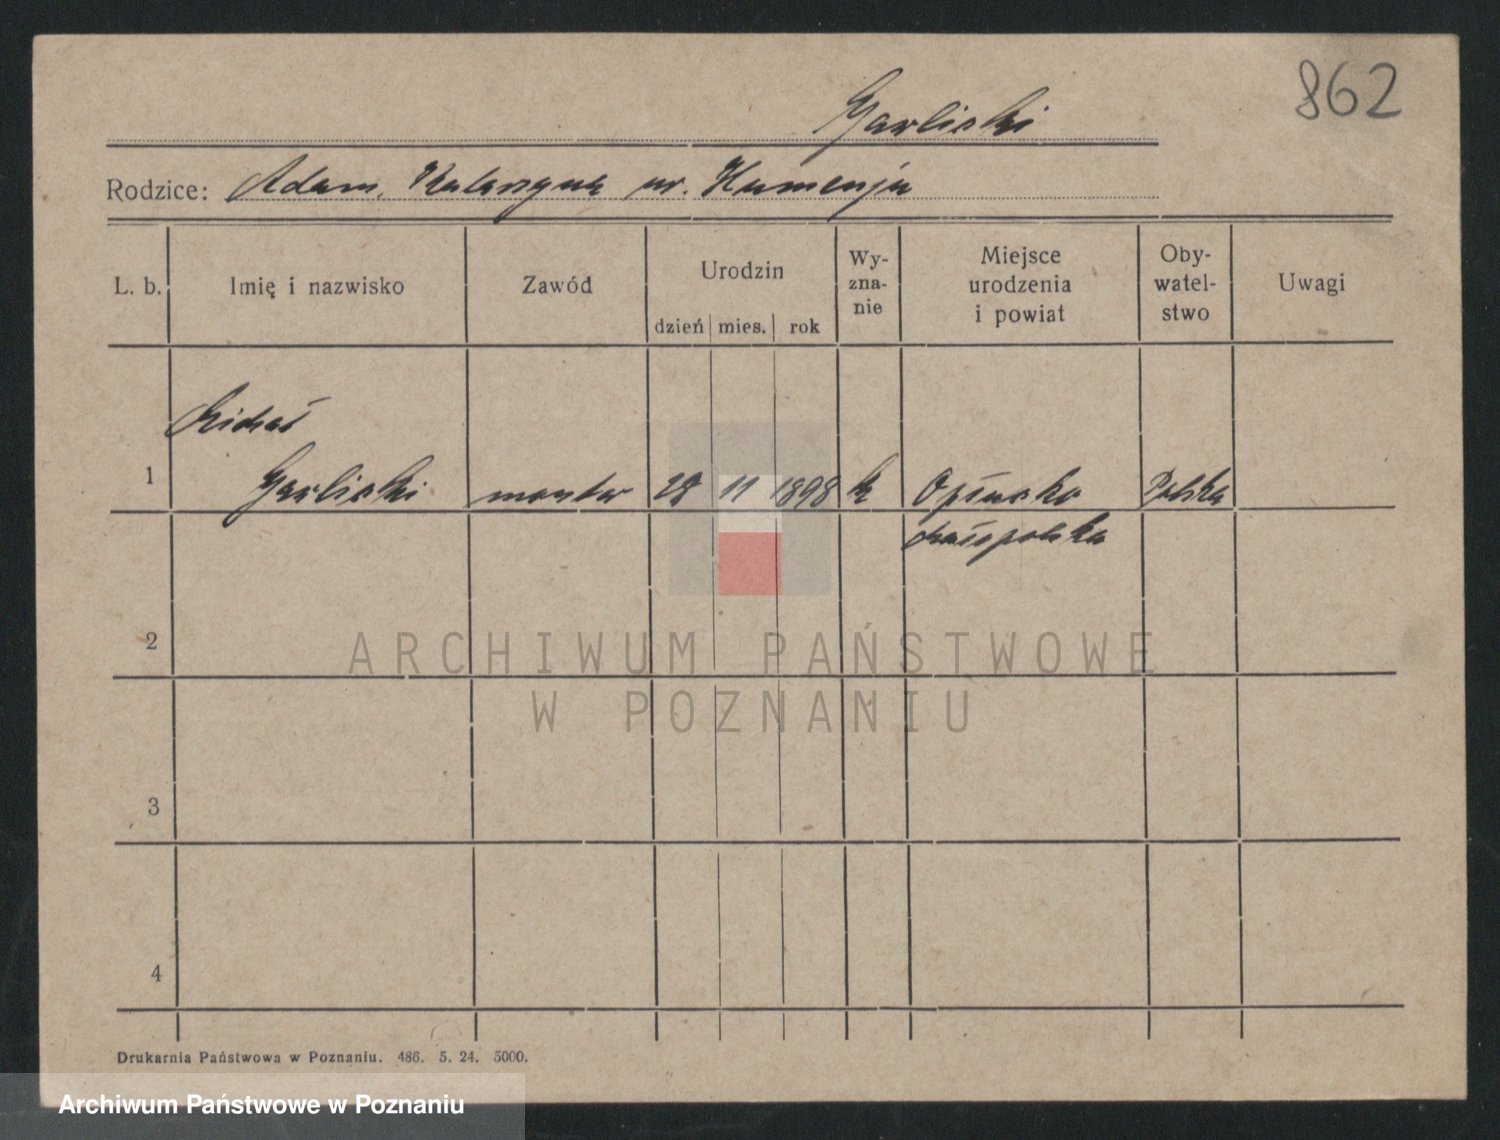 862
Garlicki
Rodzice: Adam, Katarzyna ur. Humenju
L. b. Imię i nazwisko Zawód Urodzin dzień mies. rok Wy-zna-nie Miejsce urodzenia i powiat Oby-watel-stwo Uwagi
Michał
1 Garlicki monter 28 11 1898 k Opłucko Polska
Małopolska
2
ARCHIWUM PAŃSTWOWE
W POZNANIU
3
4
Drukarnia Państwowa w Poznaniu. 486. 5. 24. 5000.
Archiwum Państwowe w Poznaniu